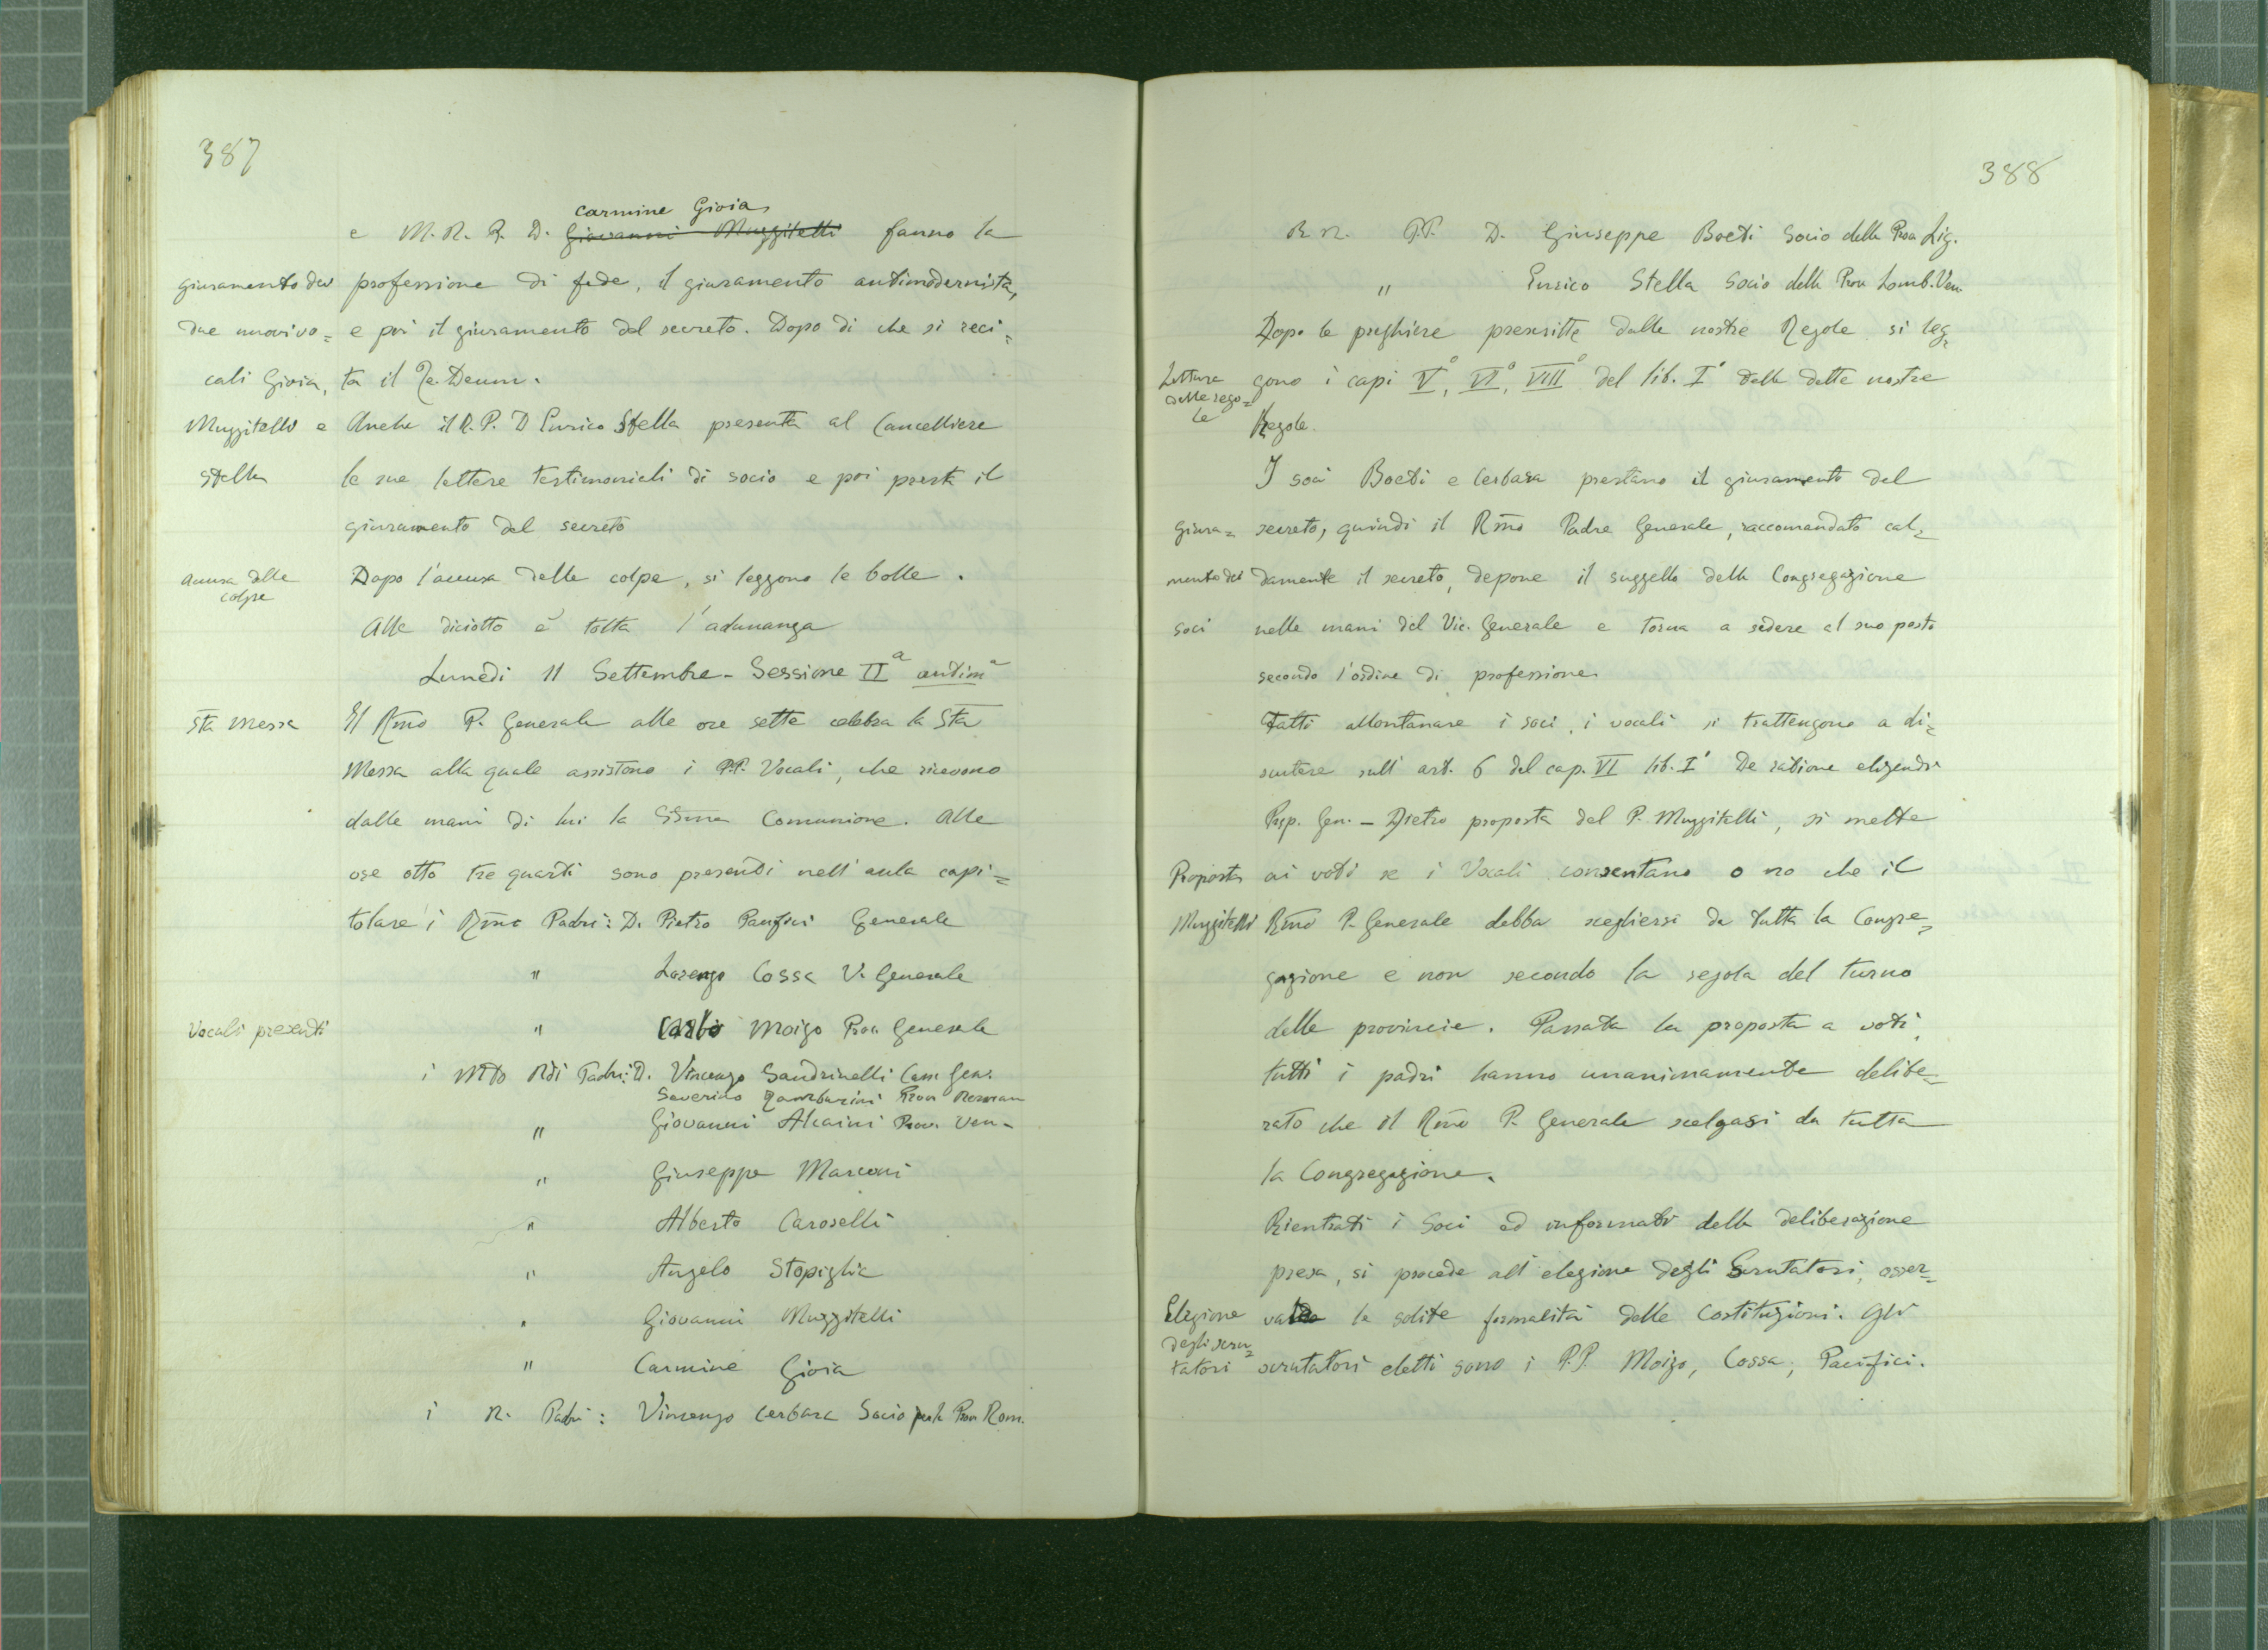 387
Carmine Gioia,
e M. R. P. D. Giovanni Muzzitelli fanno la
giuramento dei professione di fede, il giuramento antimodernista,
due nuovi vo= e poi il giuramento del secreto. Dopo di che si reci=
cali Gioia, ta il Te Deum.
Muzzitelli e Anche il R. P. D Enrico Stella presenta al Cancelliere
Stella le sue lettere testimoniali di socio e poi presta il
giuramento del secreto
accusa delle Dopo l'accusa delle colpe, si leggono le bolle.
colpe
Alle diciotto è tolta l'adunanza
Lunedì 11 Settembre - Sessione IIª antimª
Sta Messa Il Rmo P. Generale alle ore sette celebra la Sta
Messa alla quale assistono i P.P. Vocali, che ricevono
dalle mani di lui la SSma Comunione. Alle
ore otto tre quarti sono presenti nell'aula capi=
tolare i Rmi Padri: D. Pietro Pacifici Generale
" Lorenzo Cossa V. Generale
Vocali presenti " Carlo Moizo Proc Generale
i Mto Rdi Padri: D. Vincenzo Sandrinelli Can. Gen.
Severino Tamburini Prov Roman
" Giovanni Alcaini Prov. Ven-
" Giuseppe Marconi
" Alberto Caroselli
" Angelo Stopiglia
" Giovanni Muzzitelli
" Carmine Gioia
i R. Padri: Vincenzo Cerbara Socio per la Prov Rom.
388
R R. P.P. D. Giuseppe Boeti Socio della Prov Lig.
" Enrico Stella Socio della Prov Lomb. Ven.
Dopo le preghiere prescritte dalle nostre Regole si leg=
Lettura gono i capi V°, VI°, VIII° del lib. I° delle dette nostre
delle rego=
le Regole.
I soci Boeti e Cerbara prestano il giuramento del
giura= secreto, quindi il Rmo Padre Generale, raccomandato cal=
mento dei damente il secreto, depone il suggello della Congregazione
soci nelle mani del Vic. Generale e torna a sedere al suo posto
secondo l'ordine di professione.
Fatti allontanare i soci, i vocali si trattengono a di=
scutere sull'art. 6 del cap. VI lib. I° De ratione eligendi
Prep. Gen. - Dietro proposta del P. Muzzitelli, si mette
Proposta ai voti se i Vocali consentano o no che il
Muzzitelli Rmo P. Generale debba scegliersi da tutta la Congre=
gazione e non secondo la regola del turno
delle provincie. Passata la proposta a voti,
tutti i padri hanno unanimamente delibe=
rato che il Rmo P. Generale scelgasi da tutta
la Congregazione.
Rientrati i Soci ed informati della deliberazione
presa, si procede all'elezione degli Scrutatori, osser=
Elezione vate le solite formalità delle Costituzioni. Gli
degli scru=
tatori scrutatori eletti sono i P.P. Moizo, Cossa, Pacifici.